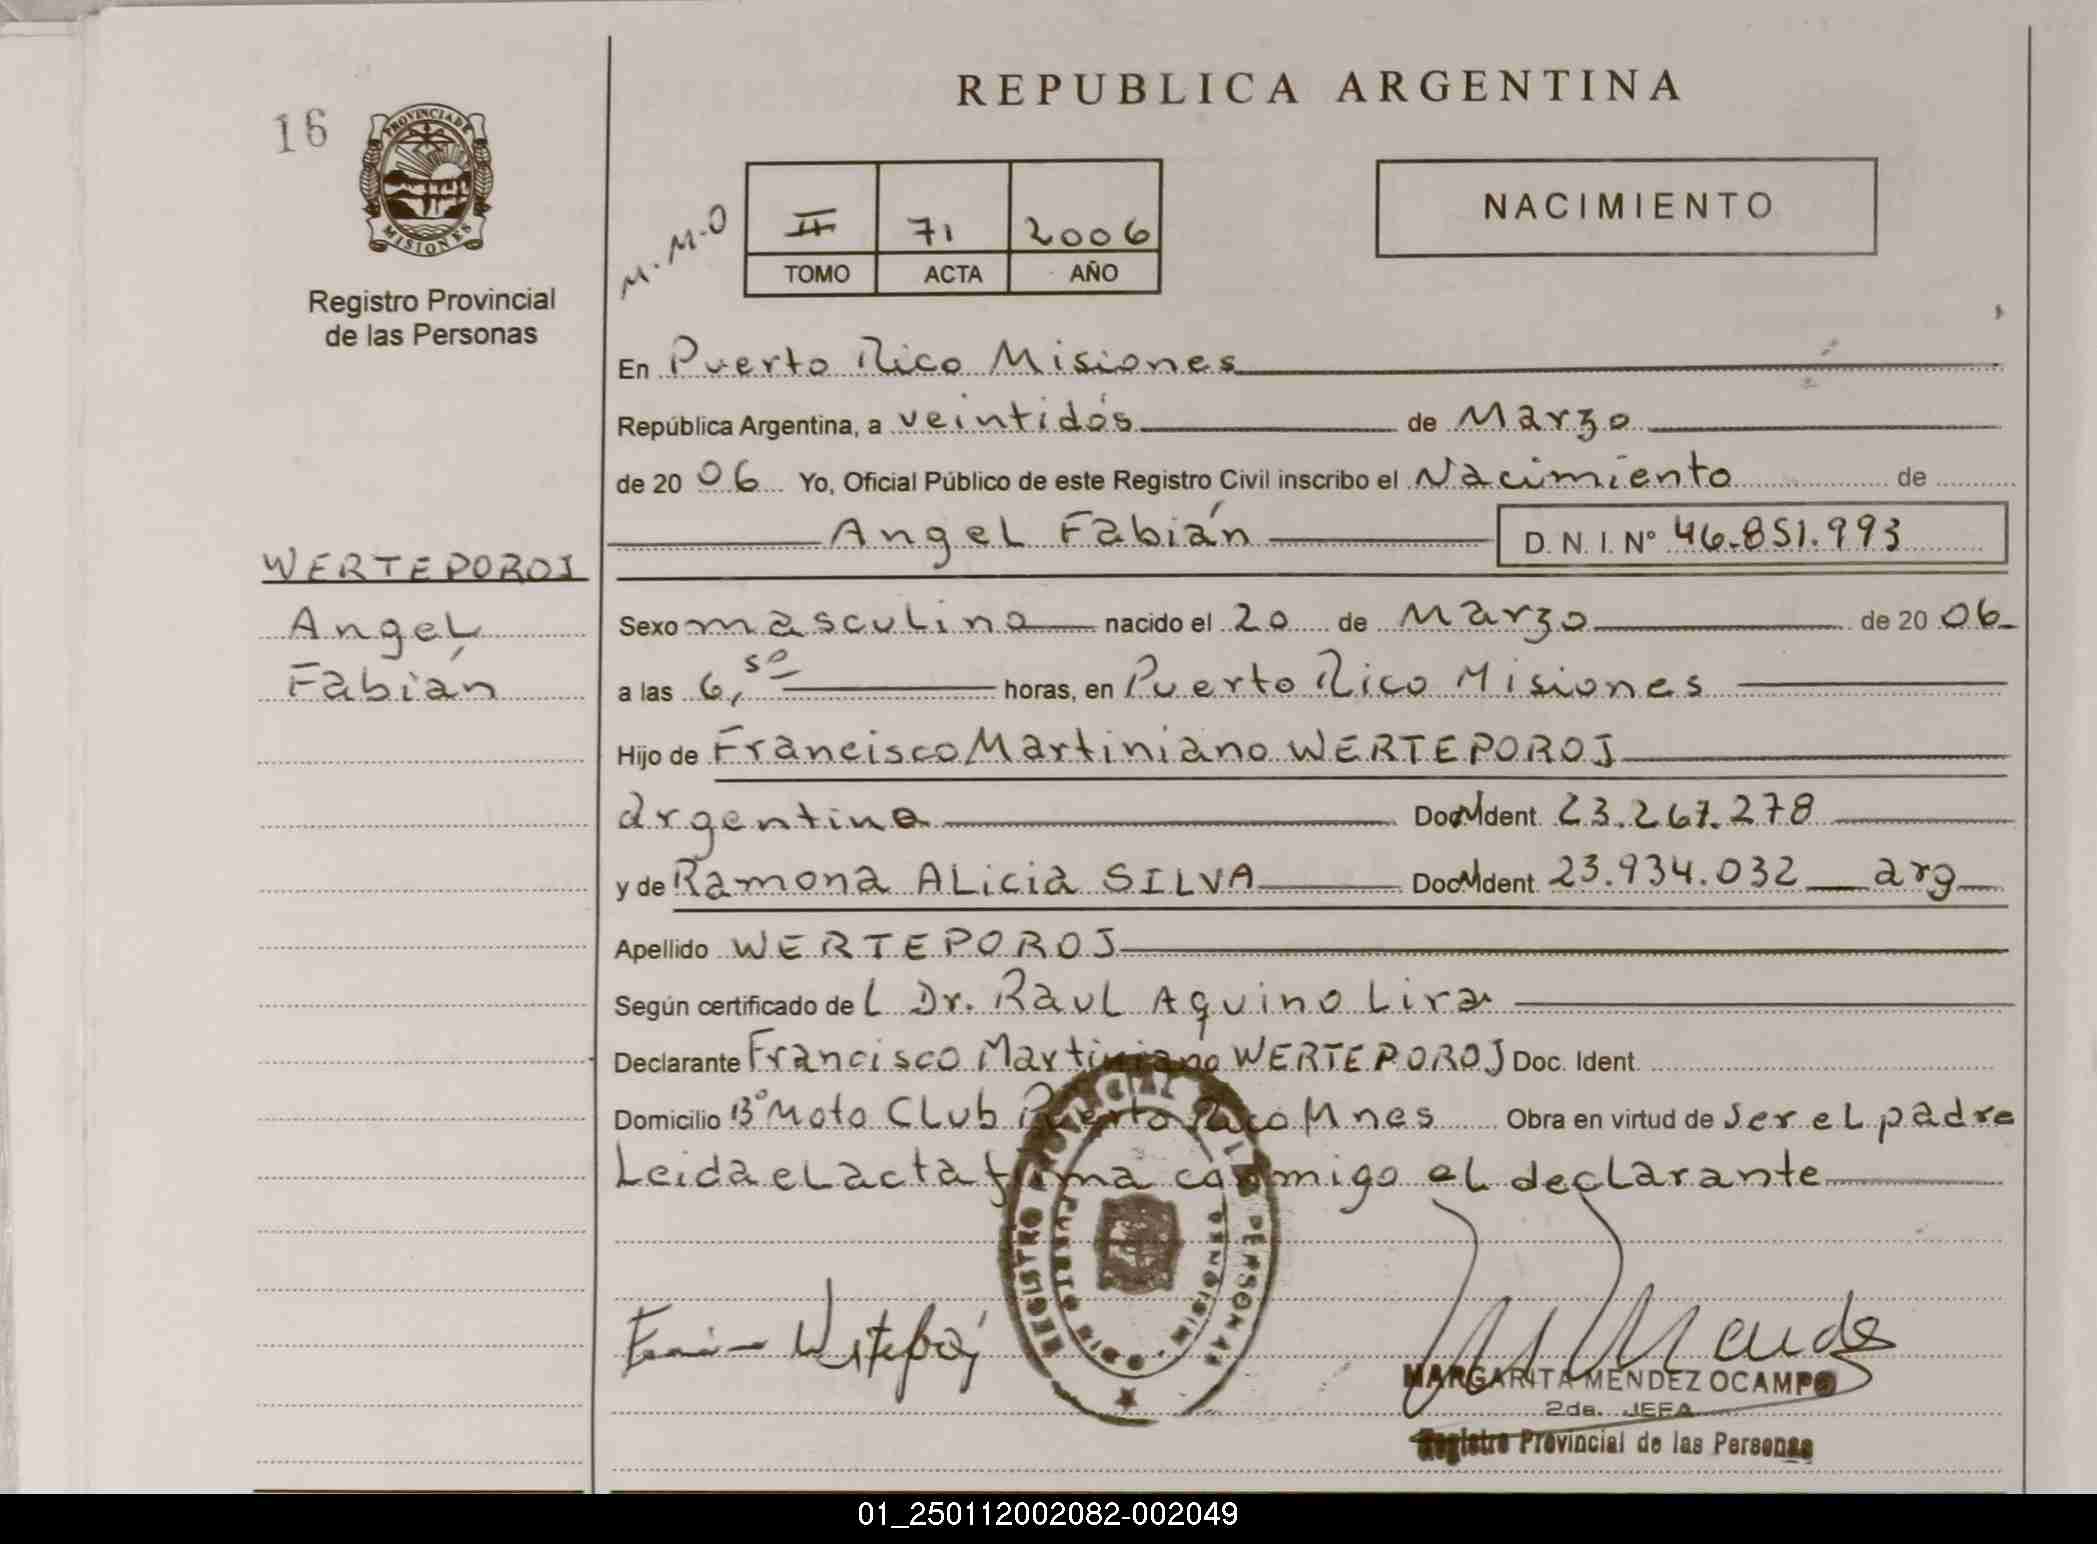 REPUBLICA ARGENTINA
16
PROVINCIA DE MISIONES
Registro Provincial
de las Personas
M.M.O
II 71 2006
TOMO ACTA AÑO
NACIMIENTO
En Puerto Rico Misiones
República Argentina, a veintidós de Marzo
de 20 06 Yo, Oficial Público de este Registro Civil inscribo el Nacimiento de
Angel Fabián D. N. I. N° 46.851.993
WERTEPOROJ
Angel
Fabián
Sexo masculino nacido el 20 de Marzo de 20 06
a las 6,50 horas, en Puerto Rico Misiones
Hijo de Francisco Martiniano WERTEPOROJ
argentino Doc. Ident. 23.267.278
y de Ramona Alicia SILVA Doc. Ident. 23.934.032 arg
Apellido WERTEPOROJ
Según certificado del Dr. Raul Aquino Lira
Declarante Francisco Martiniano WERTEPOROJ Doc. Ident.
Domicilio B° Moto Club Puerto Rico Mnes Obra en virtud de ser el padre
Leida el acta firma conmigo el declarante
REGISTRO PROVINCIAL DE LAS PERSONAS
PUERTO RICO
MARGARITA MENDEZ OCAMPO
2da. JEFA
Registro Provincial de las Personas
01_250112002082-002049